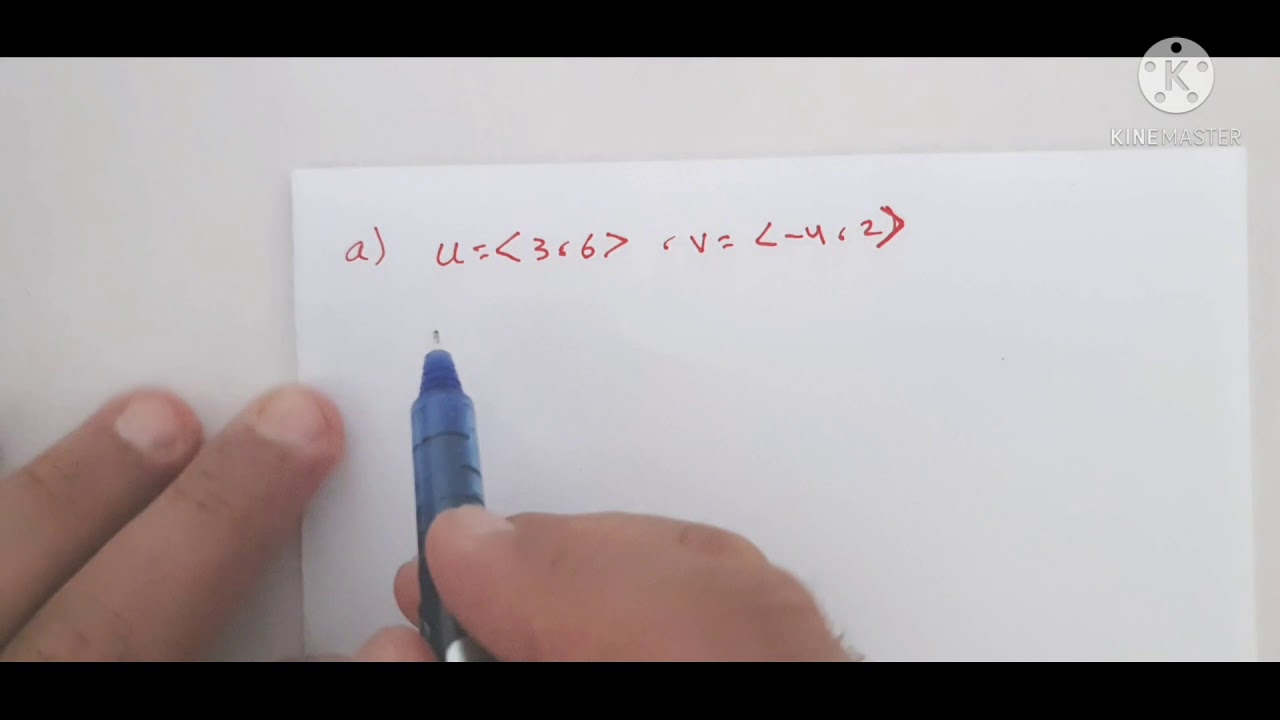 K
KINEMASTER
a) u=<3،6> ، v= <-4،2>